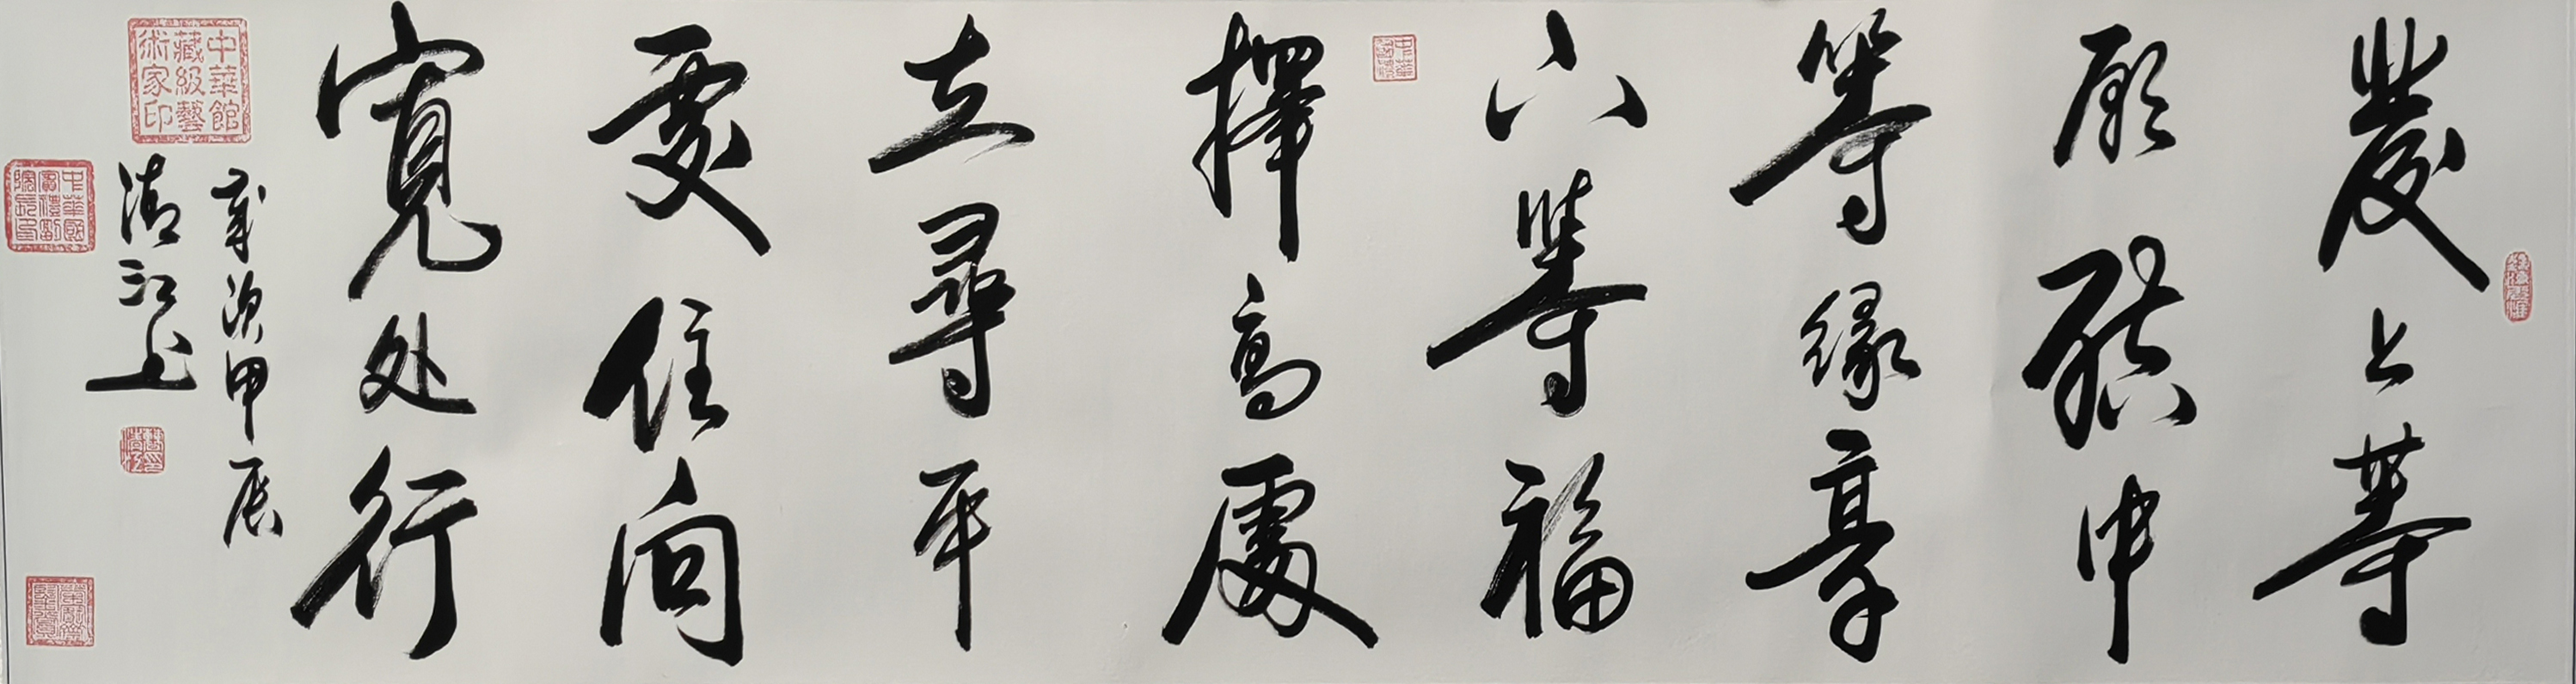 發上等
願結中
等緣享
下等福
擇高處
立尋平
處住向
寬处行
歲次甲辰
清江上
中華館
藏級藝
術家印